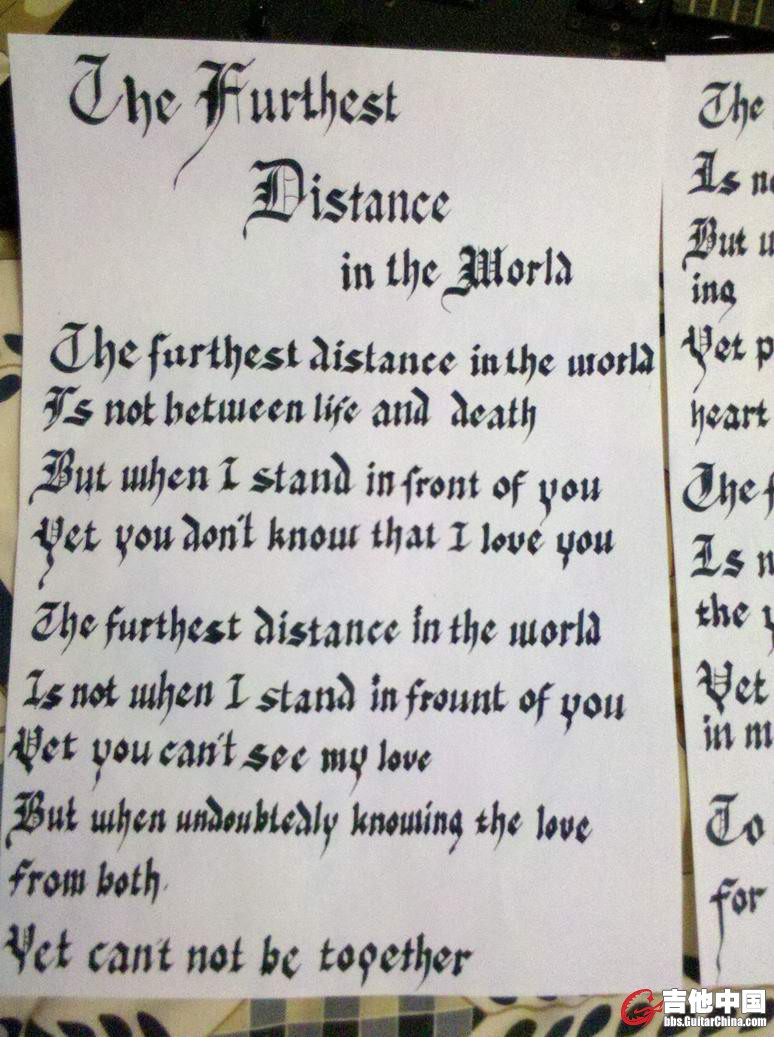 The Furthest
Distance
in the World
The furthest distance in the world
Is not between life and death
But when I stand in front of you
Yet you don't know that I love you
The furthest distance in the world
Is not when I stand in frount of you
Yet you can't see my love
But when undoubtedly knowing the love
from both.
Yet can't not be together
The
Is
But
ing
Yet
heart
The
Is
the
Yet
in
To
for
吉他中国
bbs.GuitarChina.com